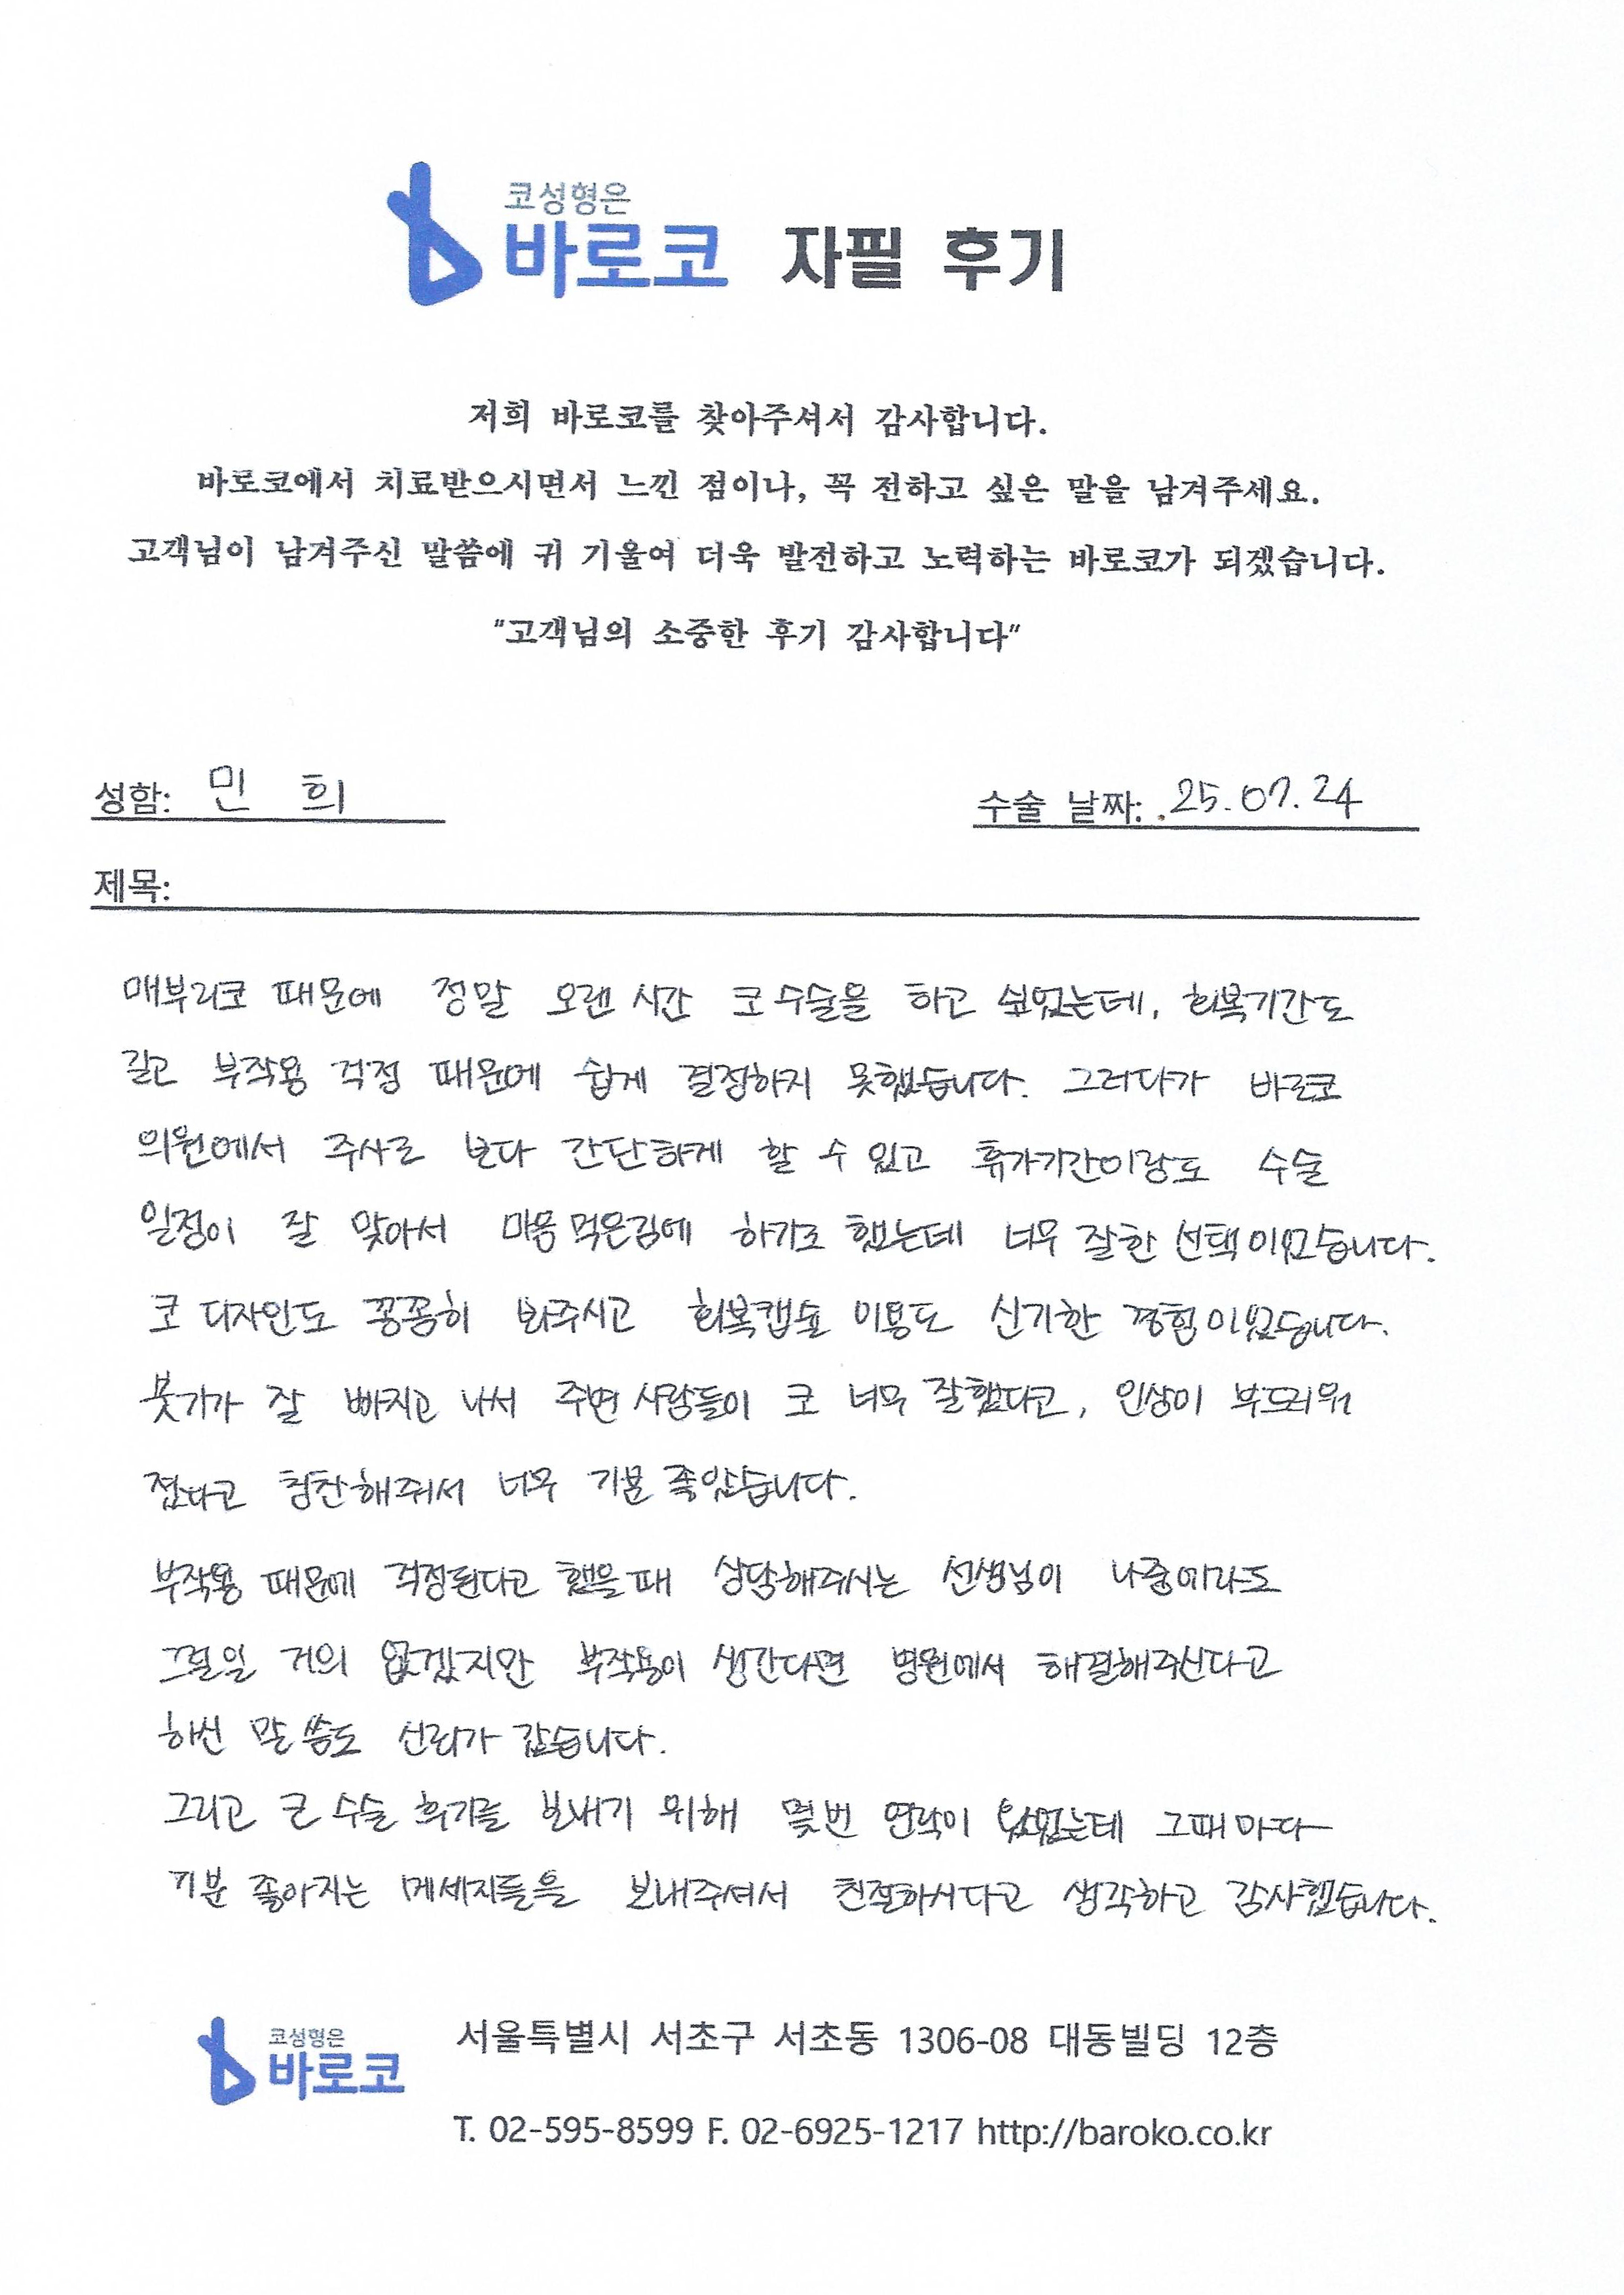 코성형은
바로코 자필 후기
저희 바로코를 찾아주셔서 감사합니다.
바로코에서 치료받으시면서 느낀 점이나, 꼭 전하고 싶은 말을 남겨주세요.
고객님이 남겨주신 말씀에 귀 기울여 더욱 발전하고 노력하는 바로코가 되겠습니다.
"고객님의 소중한 후기 감사합니다"
성함: 민 희 수술 날짜: .25.07.24
제목:
매부리코 때문에 정말 오랜 시간 코 수술을 하고 싶었는데, 회복기간도
길고 부작용 걱정 때문에 쉽게 결정하지 못했습니다. 그러다가 바로코
의원에서 주사로 보다 간단하게 할 수 있고 휴가기간이랑도 수술
일정이 잘 맞아서 마음 먹은김에 하기로 했는데 너무 잘한 선택이었습니다.
코 디자인도 꼼꼼히 봐주시고 회복캡슐 이용도 신기한 경험이었습니다.
붓기가 잘 빠지고 나서 주변 사람들이 코 너무 잘했다고, 인상이 부드러워
졌다고 칭찬해줘서 너무 기분 좋았습니다.
부작용 때문에 걱정된다고 했을때 상담해주시는 선생님이 나중에라도
그럴일 거의 없겠지만 부작용이 생긴다면 병원에서 해결해주신다고
하신 말씀도 신뢰가 갔습니다.
그리고 코 수술 후기를 보내기 위해 몇번 연락이 왔었는데 그때마다
기분 좋아지는 메세지들을 보내주셔서 친절하시다고 생각하고 감사했습니다.
코성형은
바로코
서울특별시 서초구 서초동 1306-08 대동빌딩 12층
T. 02-595-8599 F. 02-6925-1217 http://baroko.co.kr